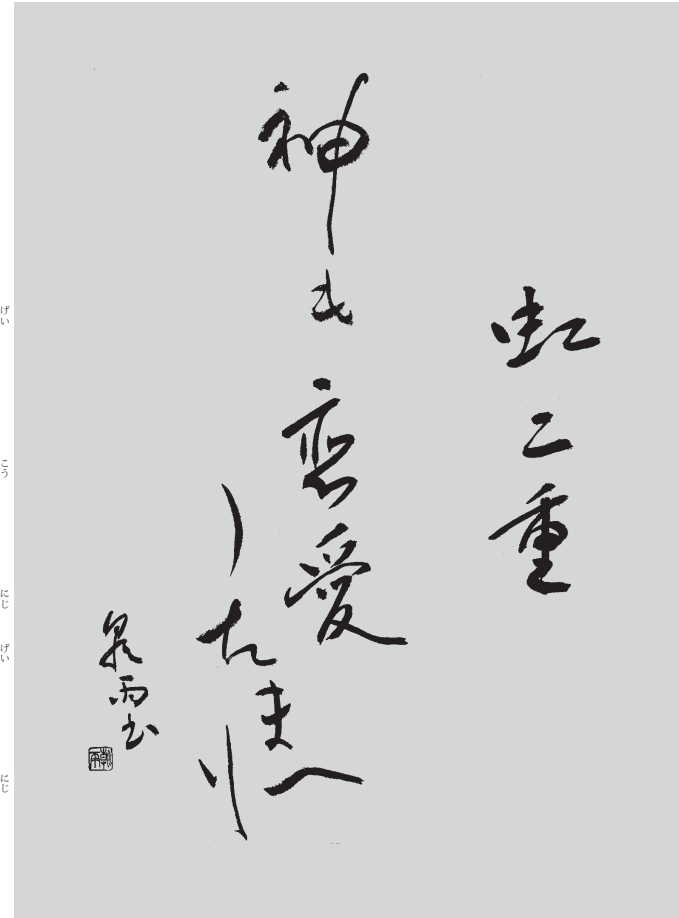 虹二重
神も恋愛
したまへり
泉雨書
げい
こう
にじ
げい
にじ